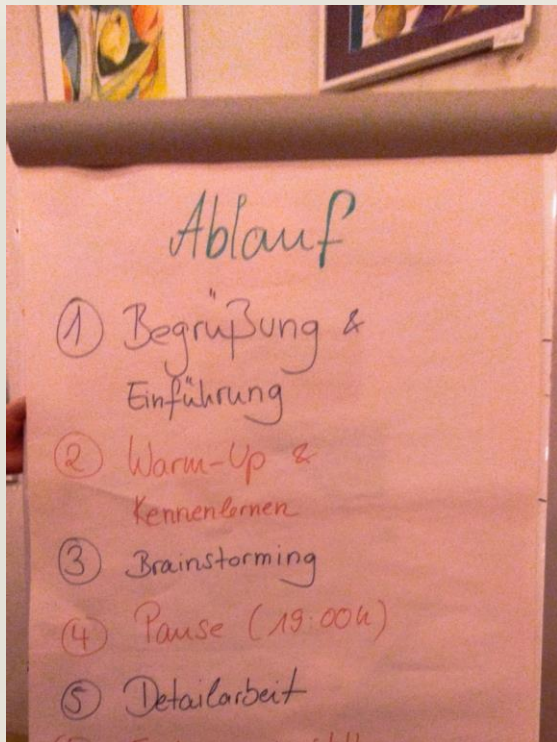 Ablauf
① Begrüßung &
Einführung
② Warm-Up &
Kennenlernen
③ Brainstorming
④ Pause (19:00h)
⑤ Detailarbeit